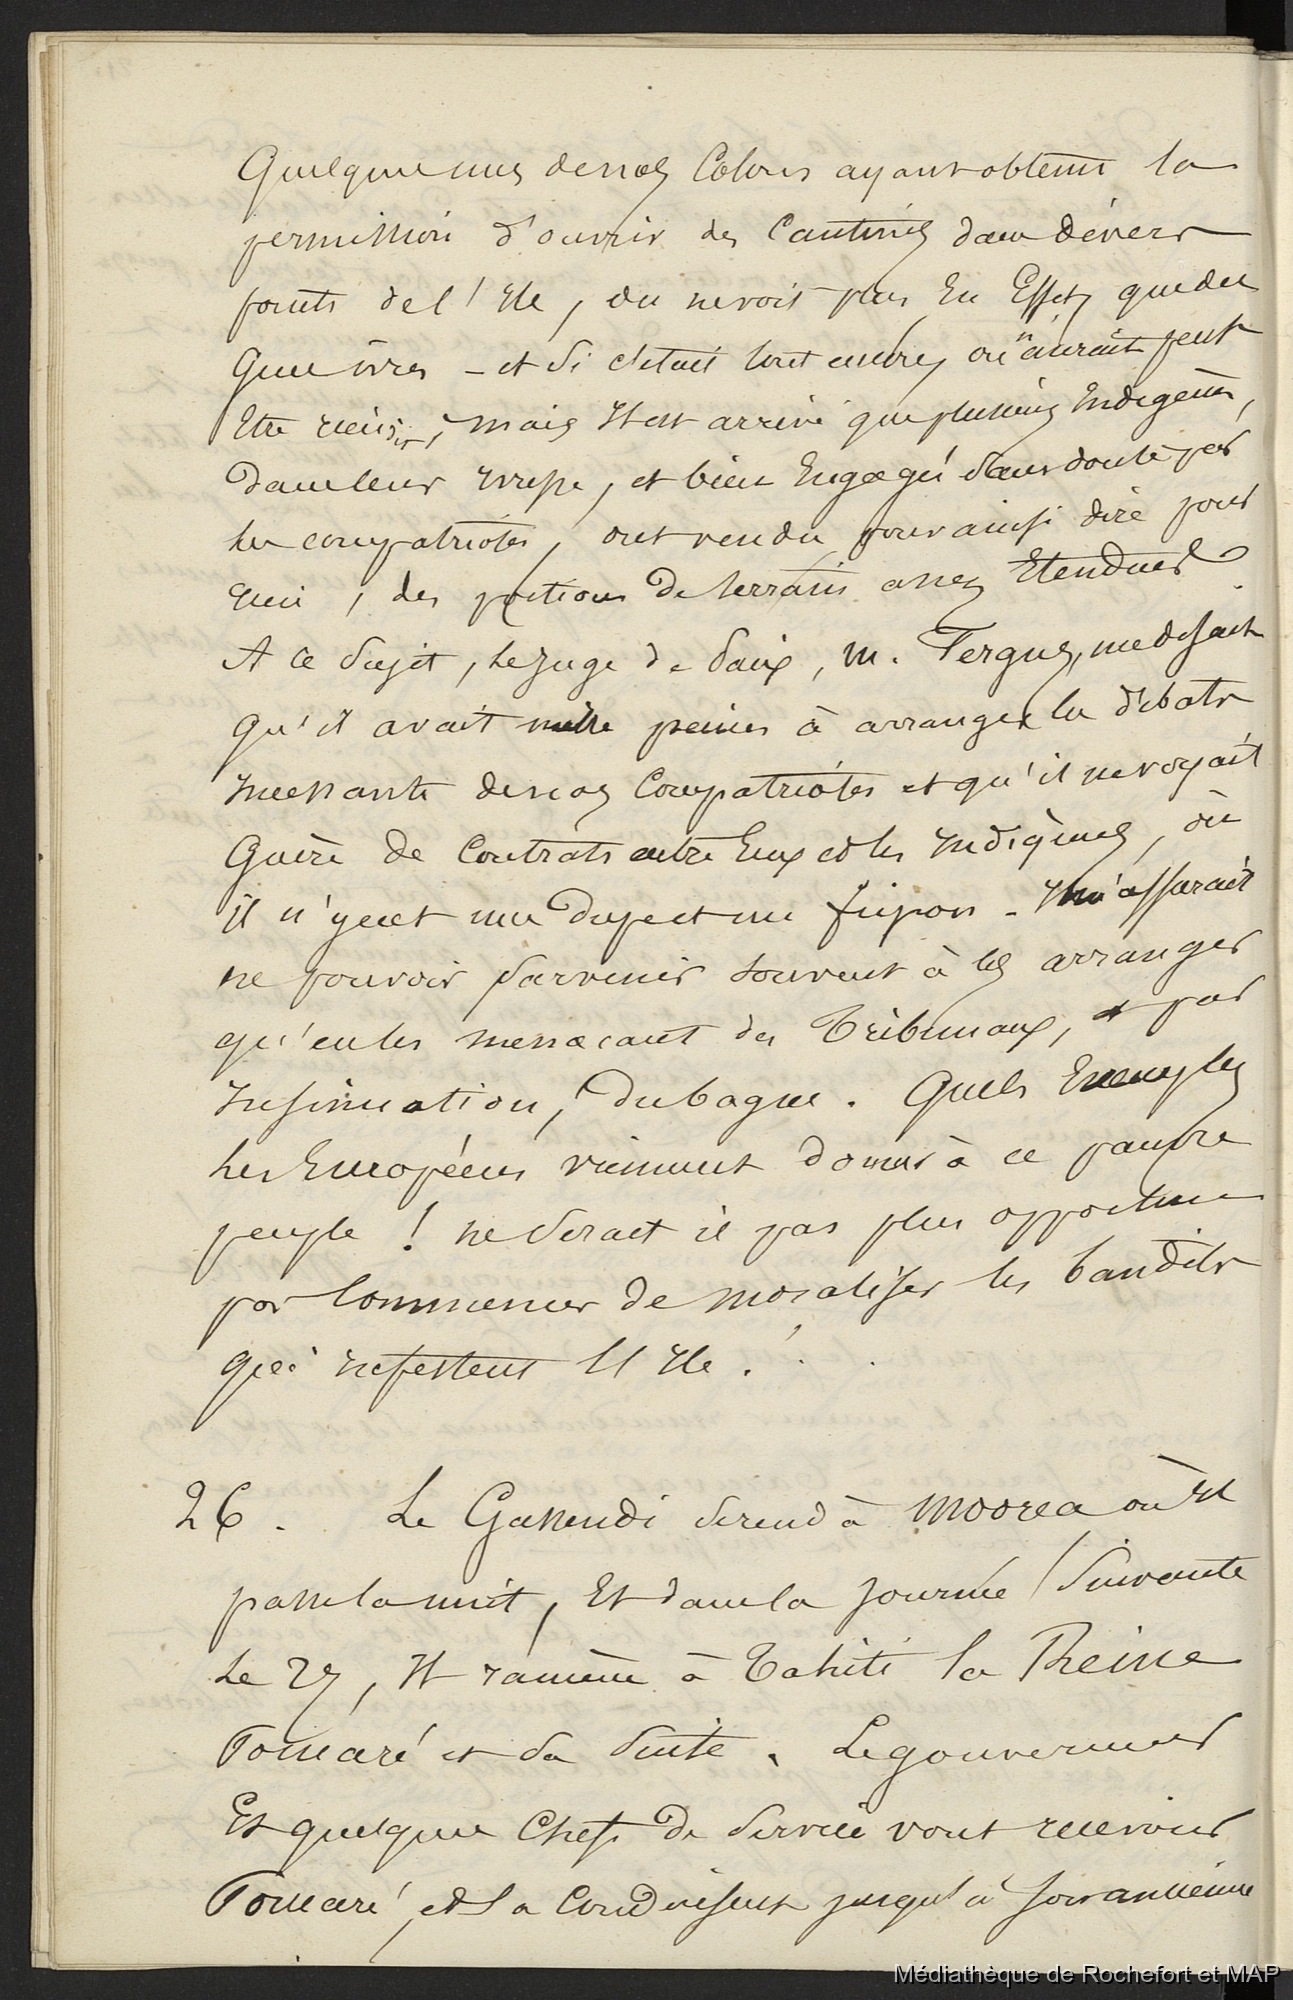 Quelques uns de nos Colons ayant obtenu la
permission d'ouvrir des Cantines dans divers
points de l'Ile, on ne voit plus En Effet, que des
Gens ivres - et si c'était tout encore, on n'aurait peut
Etre rien à dire; mais Il est arrivé que plusieurs Indigènes,
dans leur ivresse, et bien Engagés sans doute par
les compatriotes, ont vendu pour ainsi dire pour
rien, des portions de terrain assez Etendues
A ce Sujet, le Juge de Paix, M. Fergus, me disait
qu'il avait mille peines à arranger les débats
Incessants de nos Compatriotes et qu'il ne voyait
Guère de Contrats entre Eux et les Indigènes, où
il n'y eut une dupe et un fripon - Il m'assurait
ne pouvoir parvenir souvent à les arranger
qu'en les menaçant des Tribunaux, et par
Insinuation, du bagne. Quels Exemples
les Européens viennent donner à ce pauvre
peuple ! ne serait il pas plus opportun
par Commencer de moraliser les bandits
qui infestent l'Ile !
26. Le Gassendi se rend à Moorea où Il
passe la nuit, Et dans la Journée Suivante
le 27, Il ramène à Tahiti la Reine
Pomaré et sa Suite. Le gouverneur
Et quelques Chefs de Service vont recevoir
Pomaré, et la Conduisent jusqu'à son ancienne
Médiathèque de Rochefort et MAP